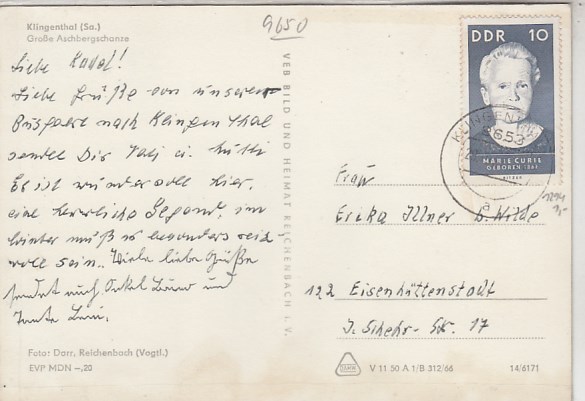 Klingenthal (Sa.)
Große Aschbergschanze
9650
Liebe
Liebe Grüße von unserer
Busfahrt nach Klingenthal
sendet Dir Vati u. Mutti
Es ist wundervoll hier,
eine herrliche Gegend, im
Winter muß es besonders reiz
voll sein. Viele liebe Grüße
sendet auch Onkel und
Tante
Foto: Darr, Reichenbach (Vogtl.)
EVP MDN –,20
VEB BILD UND HEIMAT REICHENBACH i. V.
DDR 10
MARIE CURIE
GEBOREN 1867
KLINGENTHAL
9653
a
Frau
Erika Illner b. Wilde
122 Eisenhüttenstadt
J. Schehr-Str. 17
V 11 50 A 1/B 312/66
14/6171